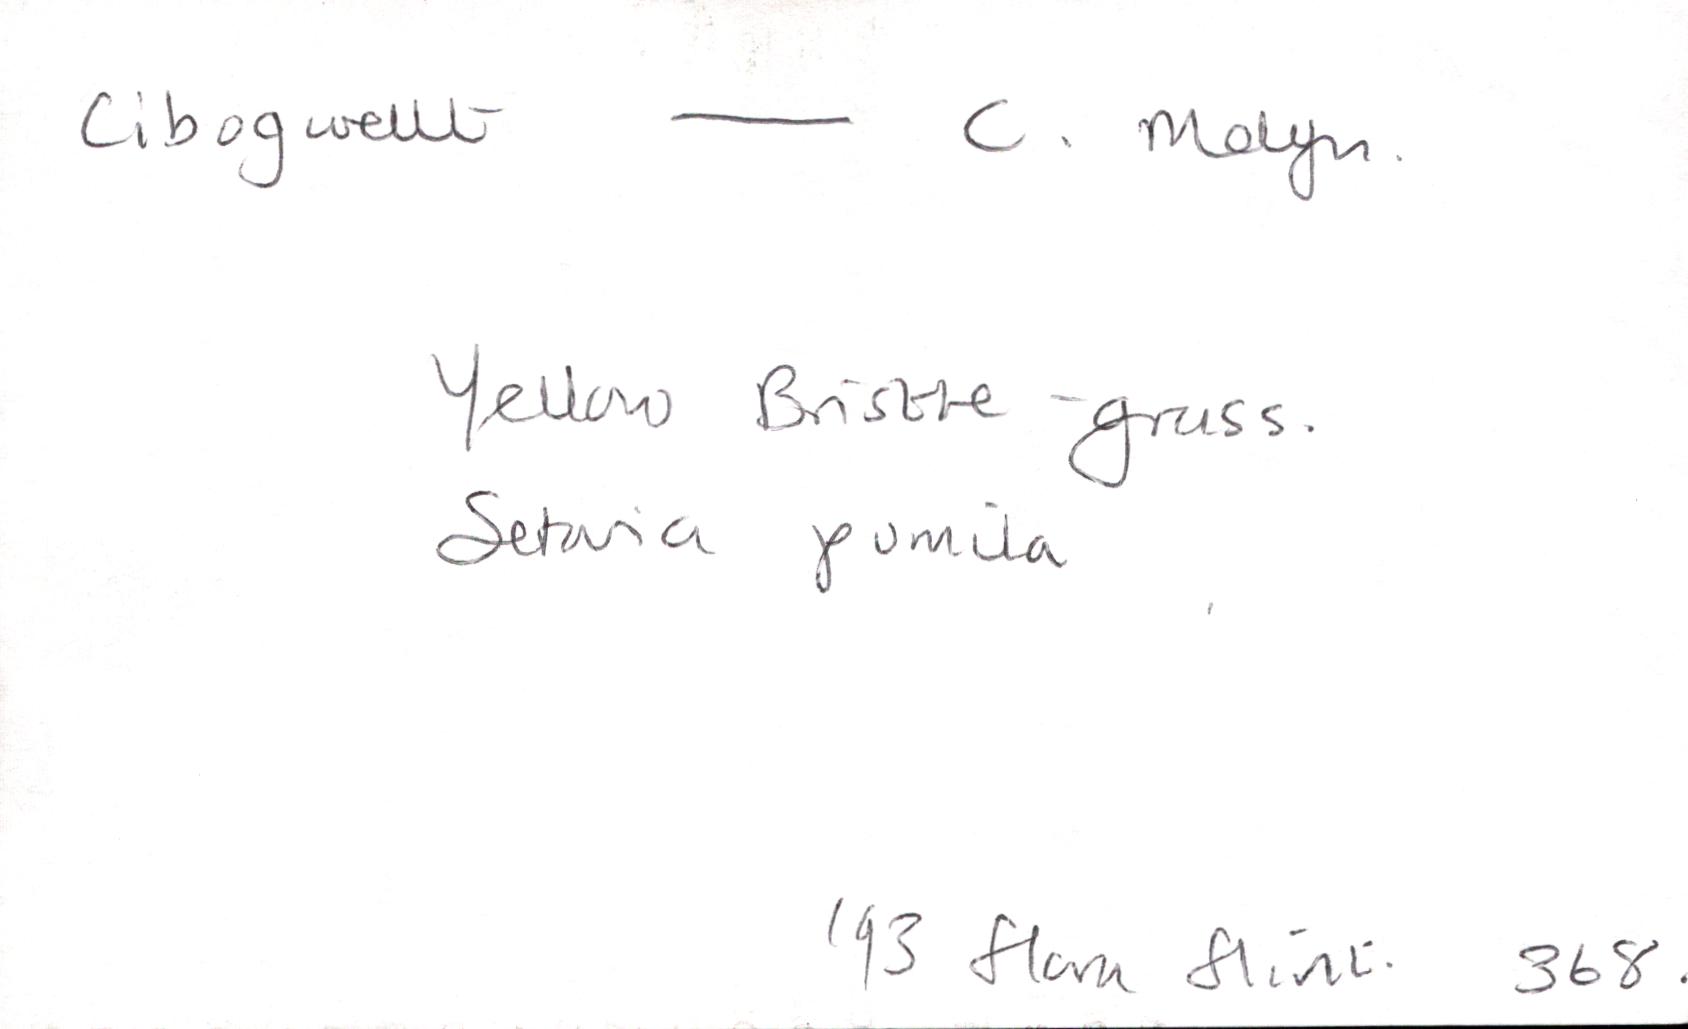 Cibogwellt — C. Melyn.
Yellow Bristle-grass.
Setaria pumila
'93 Flora Flint. 368.